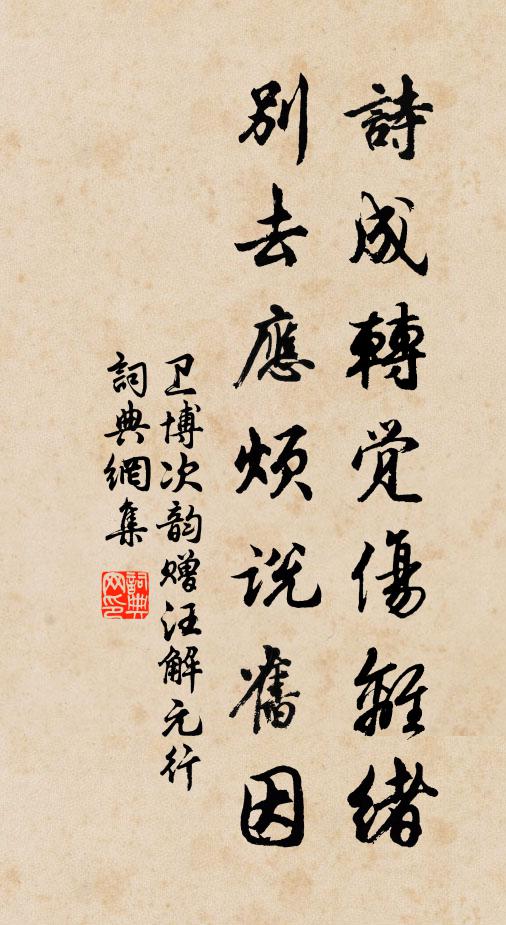 詩成轉覺傷離緒
別去應煩説舊因
卫博次韵赠汪解元行
詞典網集
詞典网印